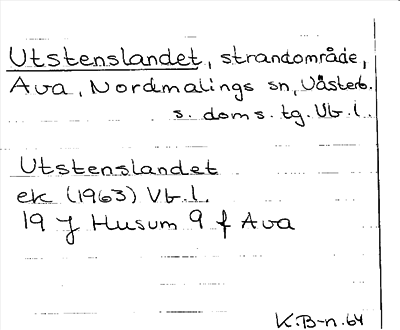 Utstenslandet, strandområde,
Ava, Nordmalings sn, Västerb.
s. doms. tg. Vb. l.
Utstenslandet
ek (1963) Vb. l.
19 J Husum 9 f Ava
K.B-n. 64